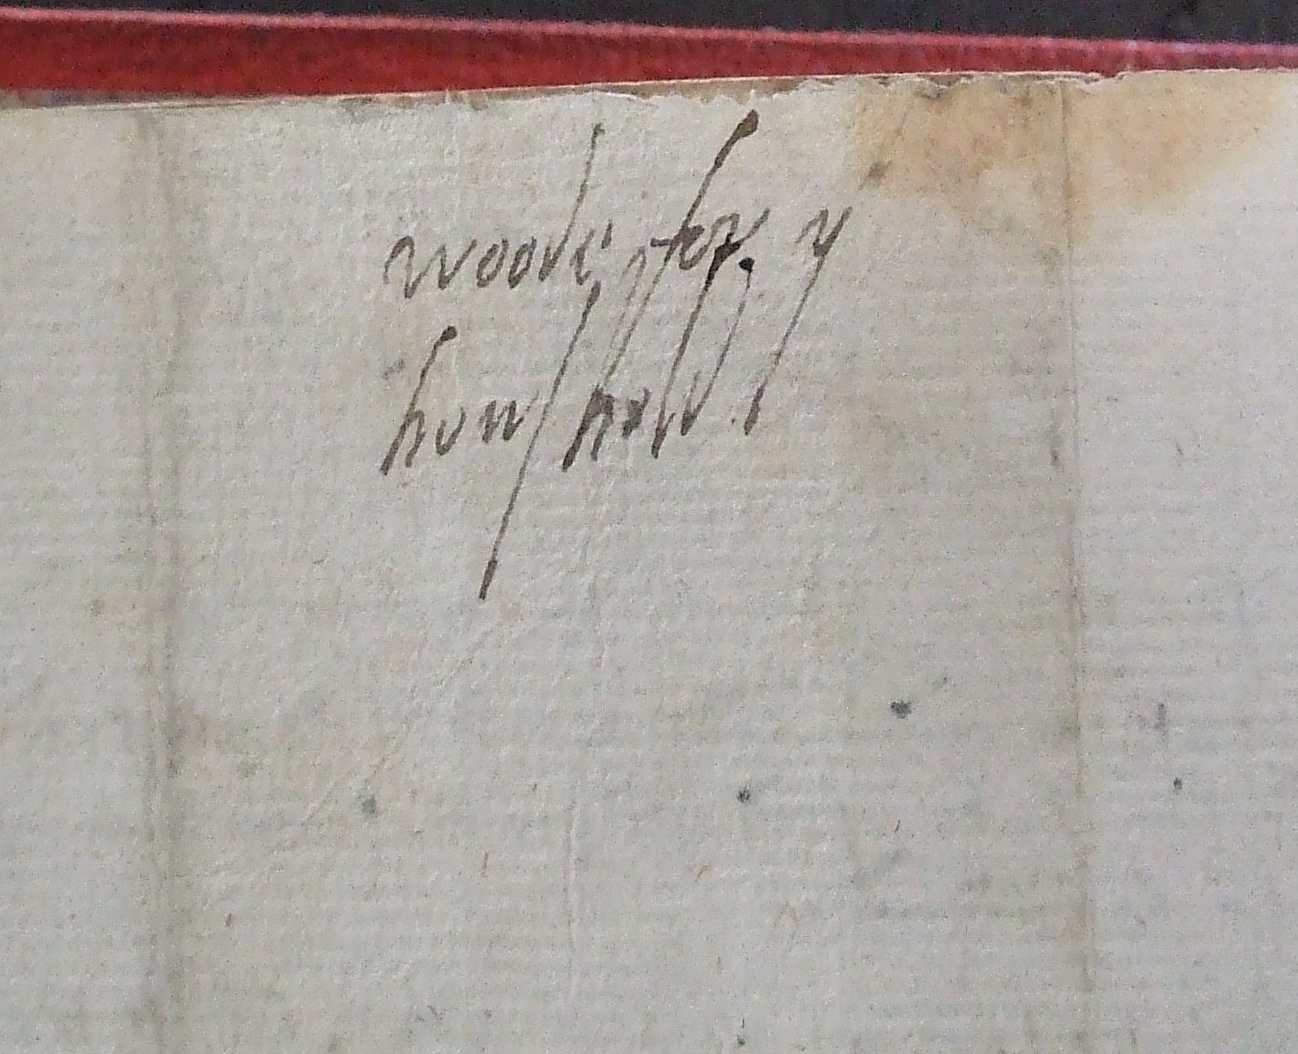 woode for y
houshold